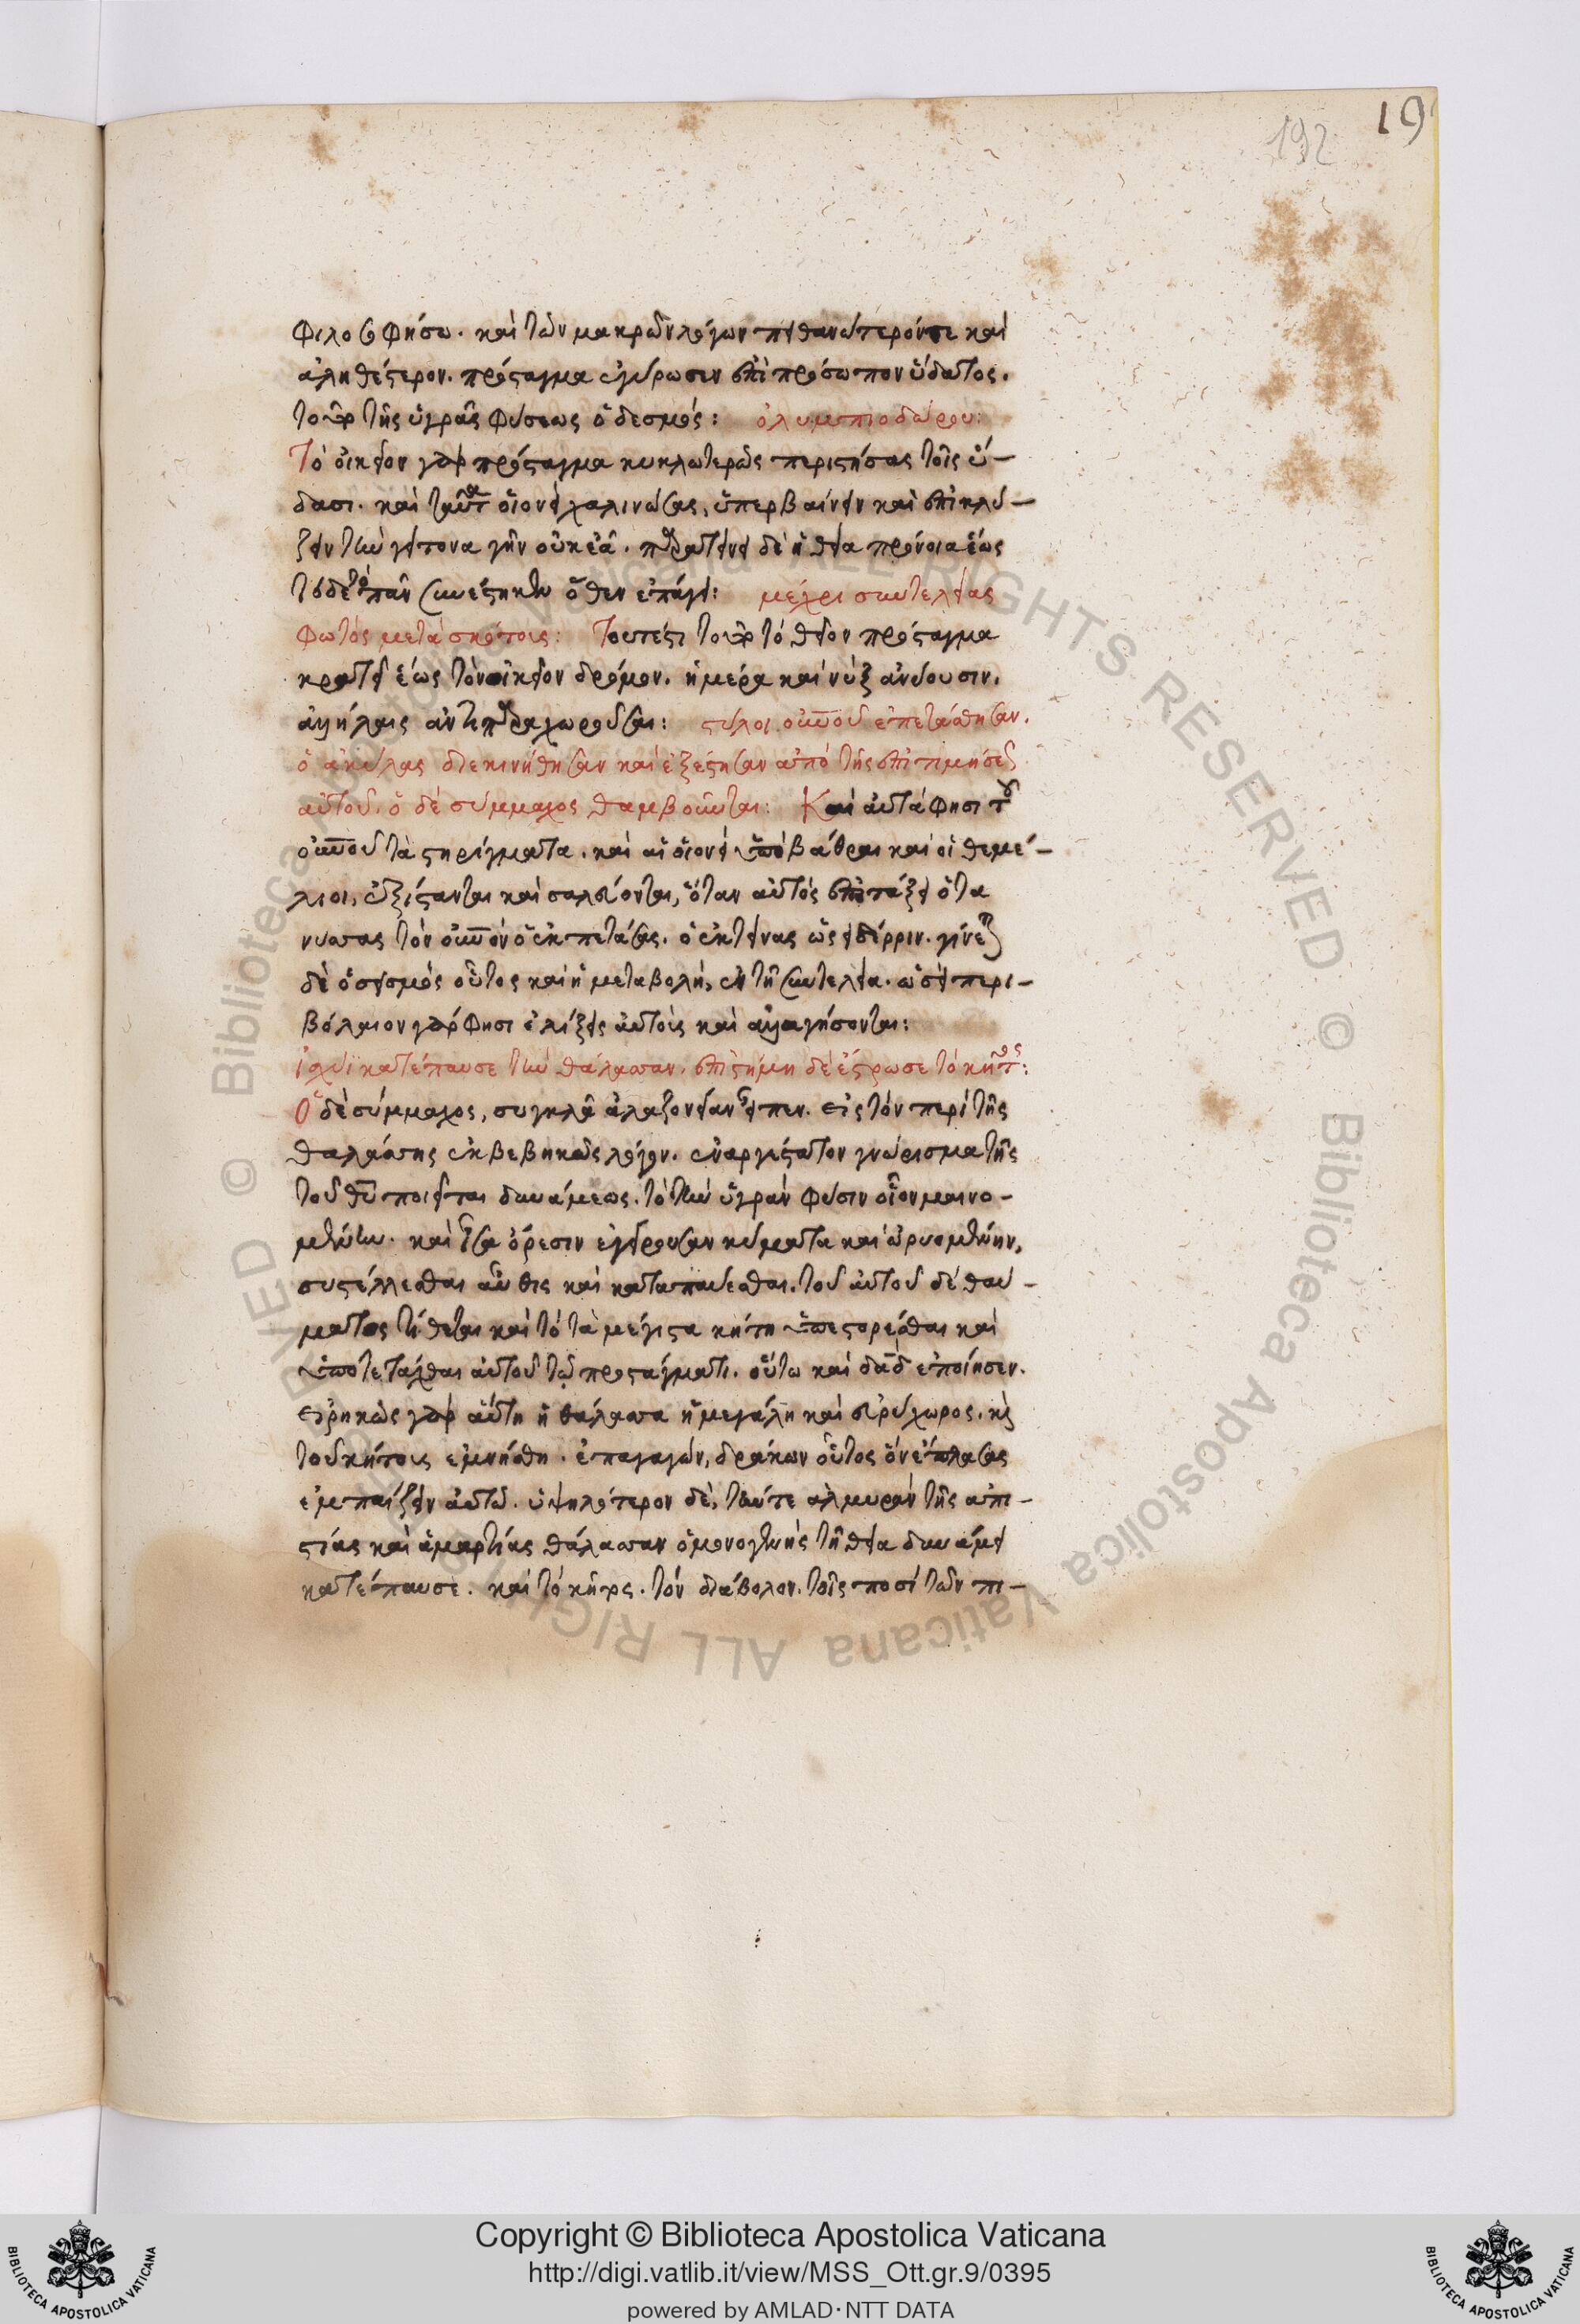 192
19
φιλοσοφήσω. καὶ τῶν μακρῶν λόγων πιθανώτερόν τε καὶ
ἀληθέστερον. πρόσταγμα ἐγύρωσεν ἐπὶ πρόσωπον ὕδατος.
τουτέστι τῆς ὑγρᾶς φύσεως ὁ δεσμός: ὀλυμπιοδώρου:
Τὸ οἰκεῖον γὰρ πρόσταγμα κυκλωτερῶς περιστήσας τοῖς ὕ–
δασι. καὶ ταῦτα οἱονεὶ χαλινώσας, ὑπερβαίνειν καὶ ἐπικλύ–
ζειν τὴν γείτονα γῆν οὐκ ἐᾶ. παρατείνει δὲ ἡ θεία πρόνοια ἕως
τόδε τὸ πᾶν συνέστηκεν ὅθεν ἐπάγει: μέχρι συντελείας
φωτὸς μετὰ σκότους: Τουτέστι τὸ θεῖον πρόσταγμα
κρατεῖ ἕως τὸν οἰκεῖον δρόμον. ἡμέρα καὶ νὺξ ἀνύουσιν.
ἀλλήλαις ἀντιπαραχωροῦσαι: στύλοι οὐνοῦ ἐπετάσθησαν.
ὁ ἀκύλας διεκινήθησαν καὶ ἐξέστησαν ἀπὸ τῆς ἐπιτιμήσεως
αὐτοῦ. ὁ δὲ σύμμαχος θαμβοῦνται: Καὶ αὐτά φησι τοῦ
οὐνοῦ τὰ στηρίγματα. καὶ αἱ οἱονεὶ ὑποβάθραι καὶ οἱ θεμέ–
λιοι, ἐξίστανται καὶ σαλεύονται, ὅταν αὐτὸς ἐπιτάξει ὁ τα
νύσας τὸν οὐνὸν ὁ ἐκπετάσας. ὁ ἐκτείνας ὡσεὶ δέρριν. γίνεται
δὲ ὁ σεισμὸς οὗτος καὶ ἡ μεταβολή, ἐν τῇ συντελεία. ὡσεὶ περι–
βόλαιον γάρ φησι ἑλίξεις αὐτοὺς καὶ ἀλλαγήσονται:
ἰσχύϊ κατέπαυσε τὴν θάλασσαν. ἐπιστήμη δὲ ἔστρωσε τὸ κῆτος:
Ὁ δὲ σύμμαχος, συγκλᾶ ἀλαζονείαν εἶπεν. εἰς τὸν περὶ τῆς
θαλάσσης ἐκβεβηκὼς λόγον. ἐναργέστατον γνώρισμα τῆς
τοῦ θυ ποιεῖται δυνάμεως. τὸ τὴν ὑγρὰν φύσιν οἷον μαινο–
μένην. καὶ ἶσα ὄρεσιν ἐγείρουσαν κύματα καὶ ὠρυομένην,
συστέλλεσθαι αὖθις καὶ καταπαύεσθαι. τοῦ αὐτοῦ δὲ θαύ–
ματος τίθεται καὶ τὸ τὰ μέγιστα κήτη ὑπεστορέσθαι καὶ
ὑποτετάχθαι αὐτοῦ τῷ προστάγματι. οὕτω καὶ δαδ ἐποίησεν.
εἰρηκὼς γὰρ αὕτη ἡ θάλασσα ἡ μεγάλη καὶ εὐρύχωρος. καὶ
τοῦ κήτους ἐμνήσθη. ἐπαγαγών, δράκων οὗτος ὃν ἔπλασας
ἐμπαίζειν αὐτῷ. ὑψηλότερον δὲ, τήν τε ἁλμυρὰν τῆς ἀπι–
στίας καὶ ἁμαρτίας θάλασσαν ὁ μονογενὴς τῇ θεία δυνάμει
κατέπαυσε. καὶ τὸ κῆτος. τὸν διάβολον. τοῖς ποσὶ τῶν πι–
© Biblioteca Apostolica Vaticana ALL RIGHTS RESERVED © Biblioteca Apostolica Vaticana ALL RIGHTS RESERVED
BIBLIOTECA APOSTOLICA VATICANA
Copyright © Biblioteca Apostolica Vaticana
http://digi.vatlib.it/view/MSS_Ott.gr.9/0395
powered by AMLAD · NTT DATA
BIBLIOTECA APOSTOLICA VATICANA